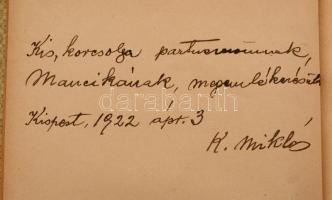 Kis, korcsolya partneremnek,
Mancikának, megemlékezésül
Kispest, 1922 ápr. 3
K. Miklós
darabanth.com